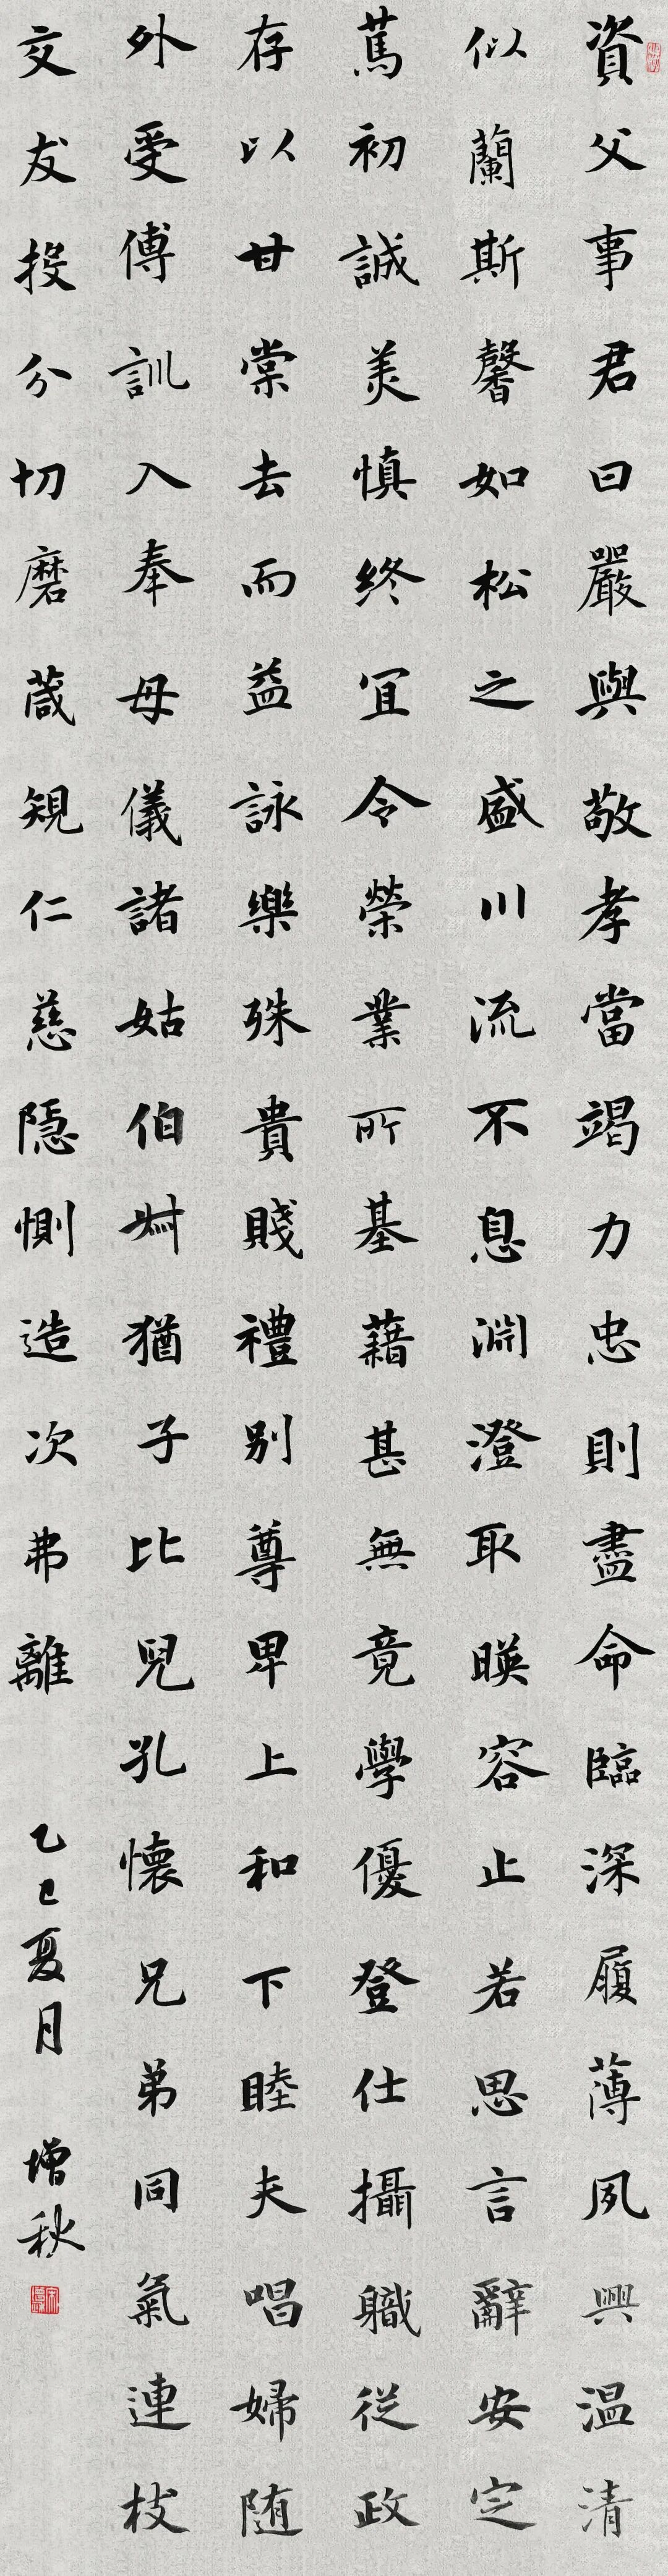 資父事君曰嚴與敬孝當竭力忠則盡命臨深履薄夙興温清
似蘭斯馨如松之盛川流不息淵澄取暎容止若思言辭安定
篤初誠美慎終宜令榮業所基藉甚無竟學優登仕攝職從政
存以甘棠去而益詠樂殊貴賤禮別尊卑上和下睦夫唱婦随
外受傅訓入奉母儀諸姑伯叔猶子比兒孔懐兄弟同氣連枝
交友投分切磨箴規仁慈隱惻造次弗離
乙巳夏月
增秋